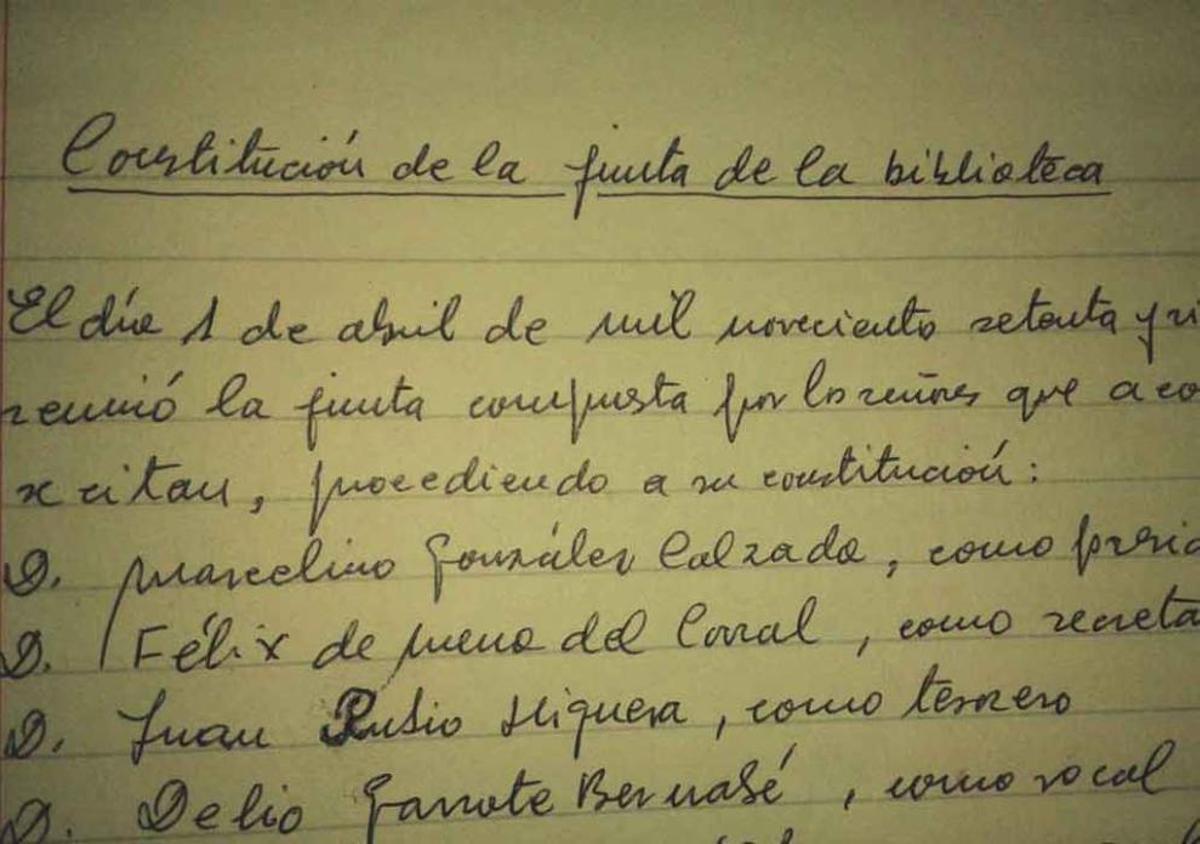 Constitución de la junta de la biblioteca
El día 1 de abril de mil noveciento setenta y
reunió la junta compuesta por los señores que a co
se citan, procediendo a su constitución:
D. Marcelino González Calzada, como presid
D. Félix de Mena del Corral, como secreta
D. Juan Rubio Higuera, como tesorero
D. Delio Garrote Bernabé, como vocal